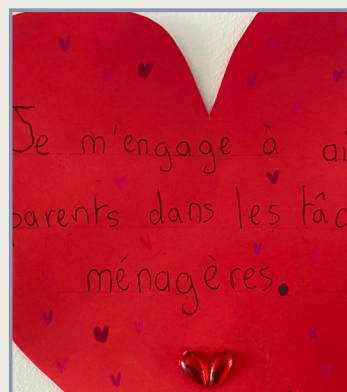 Je m'engage à ai
parents dans les tâc
ménagères.